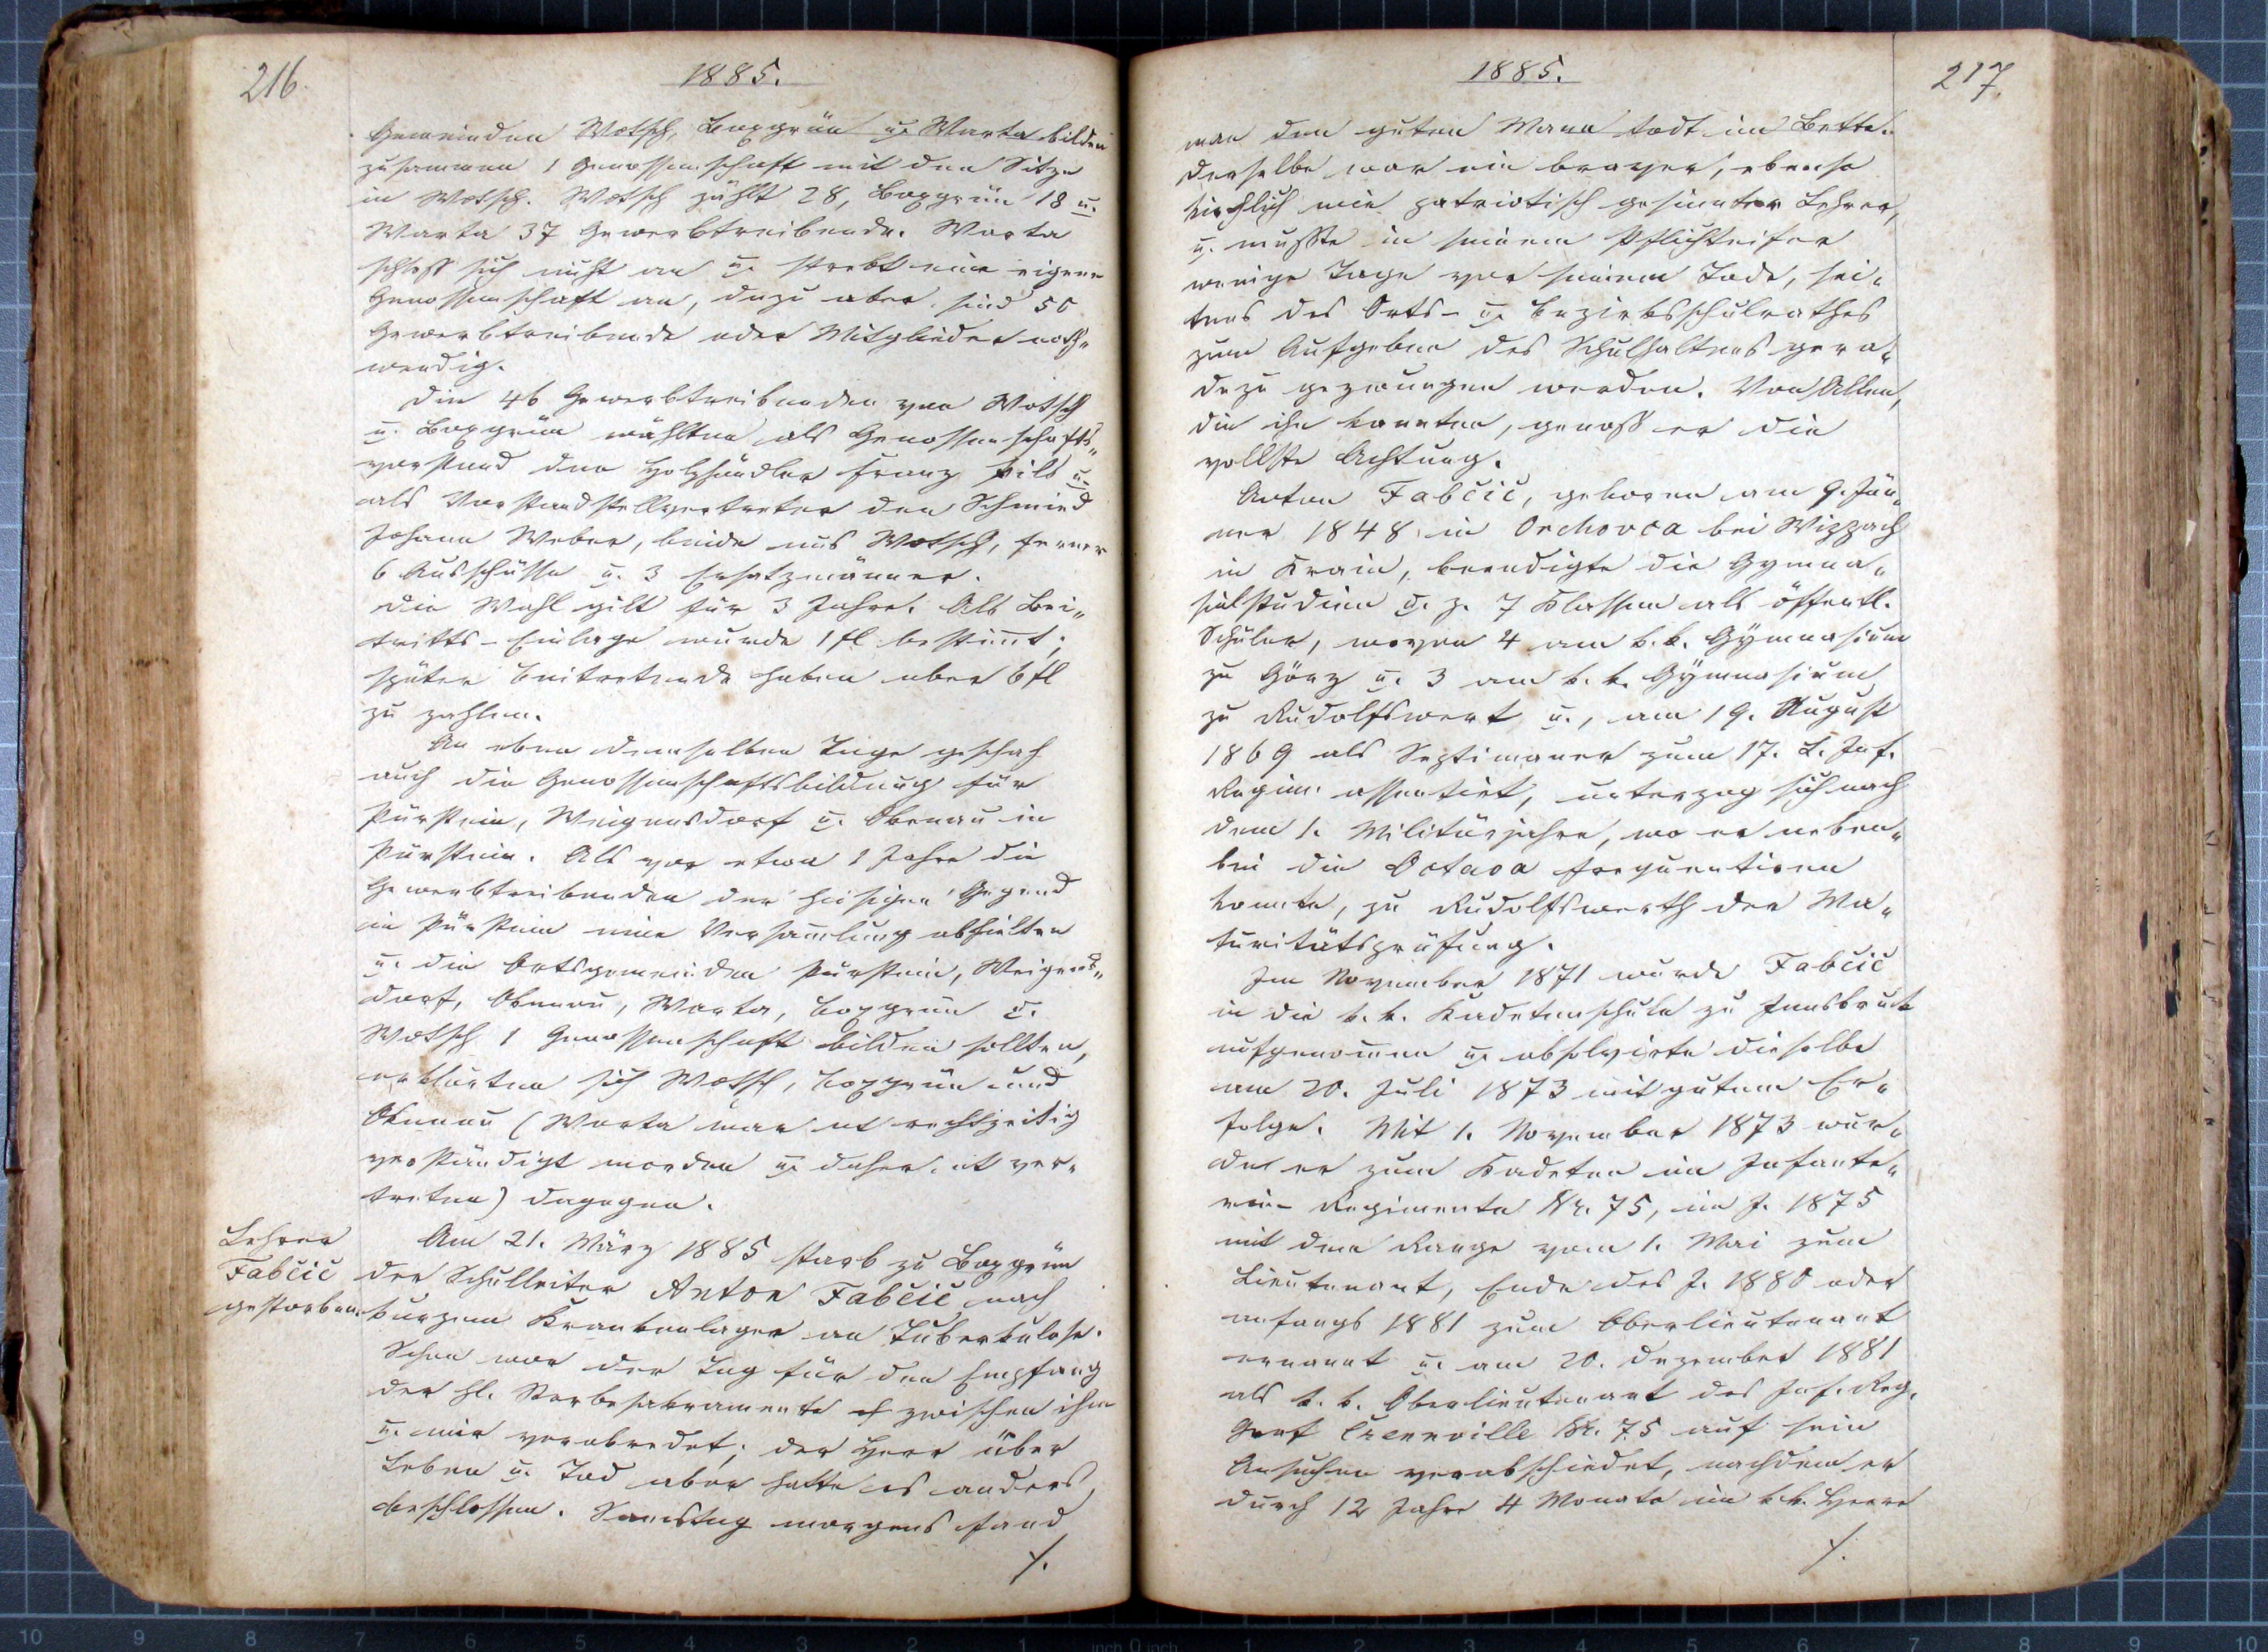 216.
1885.
Gemeinden Wotsch, Boxgrün u. Warta bilden
zusammen 1 Genossenschaft mit dem Sitze
in Wotsch. Wotsch zählt 28, Boxgrün 18 u.
Warta 37 Gewerbtreibende. Warta
schloß sich nicht an u. strebt eine eigene
Genossenschaft an, dazu aber sind 50
Gewerbtreibende oder Mitglieder noth„
wendig.
Die 46 Gewerbtreibenden von Wotsch
u. Boxgrün wählten als Genossenschafts„
vorstand den Holzhändler Franz Pilß u.
als Vorstandstellvertreter den Schmied
Johann Weber, beide aus Wotsch, ferner
6 Ausschüsse u. 3 Ersatzmänner.
Die Wahl gilt für 3 Jahre. Als Bei„
tritts-Einlage wurde 1 fl bestim̄t;
später Beitretende haben aber 6 fl
zu zahlen.
An eben demselben Tage geschah
auch die Genossenschaftsbildung für
Pürstein, Weigensdorf u. Obenau in
Pürstein. Als vor etwa 1 Jahre die
Gewerbtreibenden der hiesigen Gegend
in Pürstein eine Versam̄lung abhielten
u. die Ortsgemeinden Pürstein, Weigens„
dorf, Obenau, Warta, Boxgrün u.
Wotsch 1 Genossenschaft bilden sollten,
erklärten sich Wotsch, Boxgrün und
Obenau (Warta war nt rechtzeitig
verständigt worden u. daher nt ver„
treten) dagegen.
Lehrer
Fabčič
gestorben.
Am 21. März 1885 starb zu Boxgrün
der Schulleiter Anton Fabčič nach
kurzem Krankenlager an Tuberkulose.
Schon war der Tag für den Empfang
der hl. Sterbesakramente zwischen ihm
u. mir verabredet; der Herr über
Leben u. Tod aber hatte es anders
beschlossen. Samstag morgens fand
/.
1885.
217.
man den guten Mann todt im Bette.
Derselbe war ein braver, ebenso
kirchlich wie patriotisch gesinnter Lehrer,
u. mußte in seinem Pflichteifer
wenige Tage vor seinem Tode, sei„
tens des Orts- u. Bezirksschulrathes
zum Aufgeben des Schulhaltens gera„
dezu gezwungen werden. Von Allen,
die ihn kannten, genoß er die
vollste Achtung.
Anton Fabčič, geboren am 9. Jän„
ner 1848 in Orehovca bei Wippach
in Krain, beendigte die Gymna„
sialstudien u. z. 7 Klassen als öffentl.
Schüler, wovon 4 am k. k. Gymnasium
zu Görz u. 3 am k. k. Gymnasium
zu Rudolfswert u., am 19. August
1869 als Septimaner zum 17. L. Inf.
Regim. assentirt, unterzog sich nach
dem 1. Militärjahre, wo er neben„
bei die Octava frequentiren
konnte, zu Rudolfswerth der Ma„
turitätsprüfung.
Im November 1871 wurde Fabčič
in die k. k. Kadetenschule zu Innsbruck
aufgenom̄en u. absolvirte dieselbe
am 20. Juli 1873 mit gutem Er„
folge. Mit 1. November 1873 wur„
de er zum Kadeten im Infante„
rie-Regimente Nr. 75, im J. 1875
mit dem Range vom 1. Mai zum
Lieutenant, Ende des J. 1880 oder
anfangs 1881 zum Oberlieutenant
ernannt u. am 20. Dezember 1881
als k. k. Oberlieutenant des Inf. Reg.
Graf Crenneville Nr. 75 auf sein
Ansuchen verabschiedet, nachdem er
durch 12 Jahre 4 Monate im k. k. Heere
/.